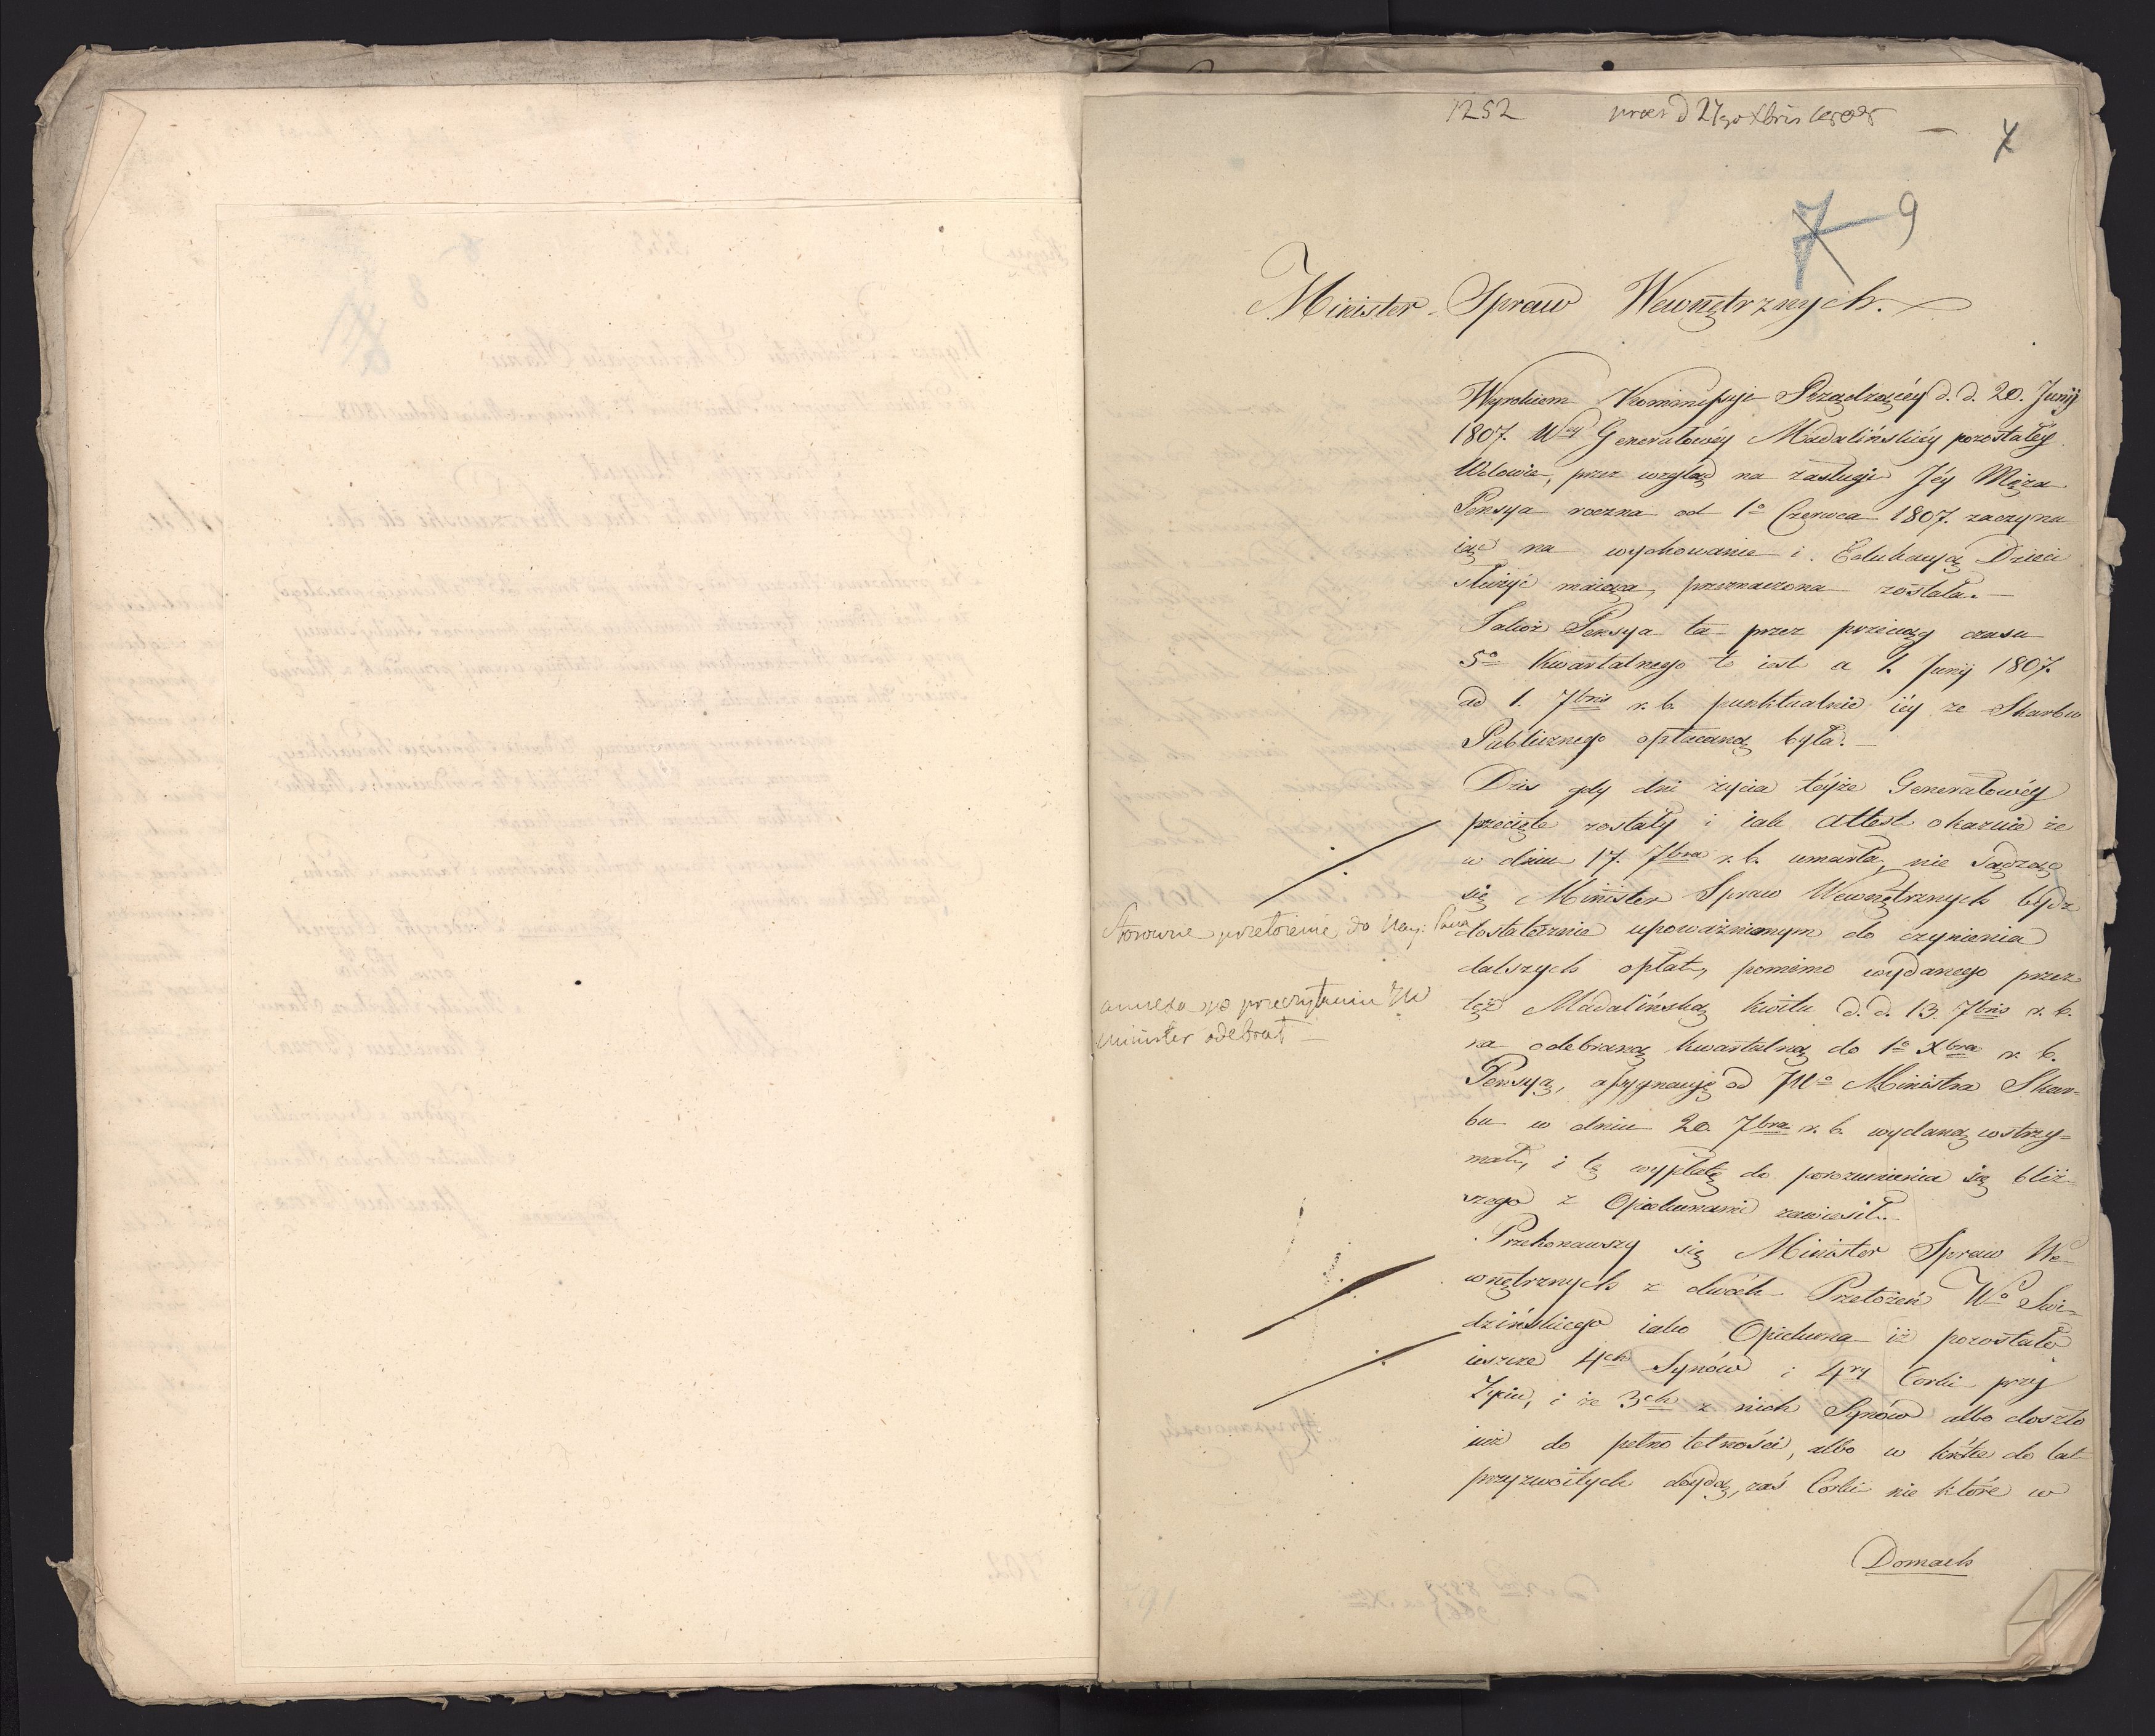 1252 praes d 27go Xbris 1808
7
7 9
Minister Spraw Wewnętrznych.
Wyrokiem Kommissyi Rządzącéy d. d. 20. Junij
1807. Wey Generałowéy Madalińskiéy pozostałéy
Wdowie, przez wzgląd na zasługi Jéy Męża
Pensya roczna od 1o Czerwca 1807. zaczyna
iąc na wychowanie i Edukacyą Dzieci
służyć maiąca, przeznaczona została.—
Jakoż Pensya ta przez przeciąg czasu
5o Kwartalnego to iest a 1. Junij 1807.
ad 1. 7bris r. b. punktualnie iéy ze Skarbu
Publicznego opłacaną była.—
Dziś gdy dni życia téyże Generałowéy
przecięte zostały i iak Attest okazuie że
w dniu 17. 7bra r. b. umarła, nie sądząc
się Minister Spraw Wewnętrznych bydź
dostatecznie upoważnionym do czynienia
dalszych opłat, pomimo wydanego przez
tęż Madalińską kwitu d. d. 13. 7bris r. b.
na odebraną kwartalną do 1o Xbra r. b.
Pensyą, assygnacyę od JWo Ministra Skar=
bu w dniu 20. 7bra r. b. wydaną wstrzy=
mał, i tę wypłatę do porozumienia się bliż=
szego z Opiekunami zawiesił.—
Przekonawszy się Minister Spraw We=
wnętrznych z dwóch Przełożeń Wo Swi=
dzińskiego iako Opiekuna iż pozostało
ieszcze 4ch Synów i 4ry Corki przy
Życiu, i że 3ch z nich Synów albo doszło
iuż do pełno letności, albo w krótce do lat
przyzwoitych doydą, zaś Córki nie które w
Domach
Stosowne przełożenie do Nay: Pana
annexa po przeczytaniu JW
Minister odebrał—